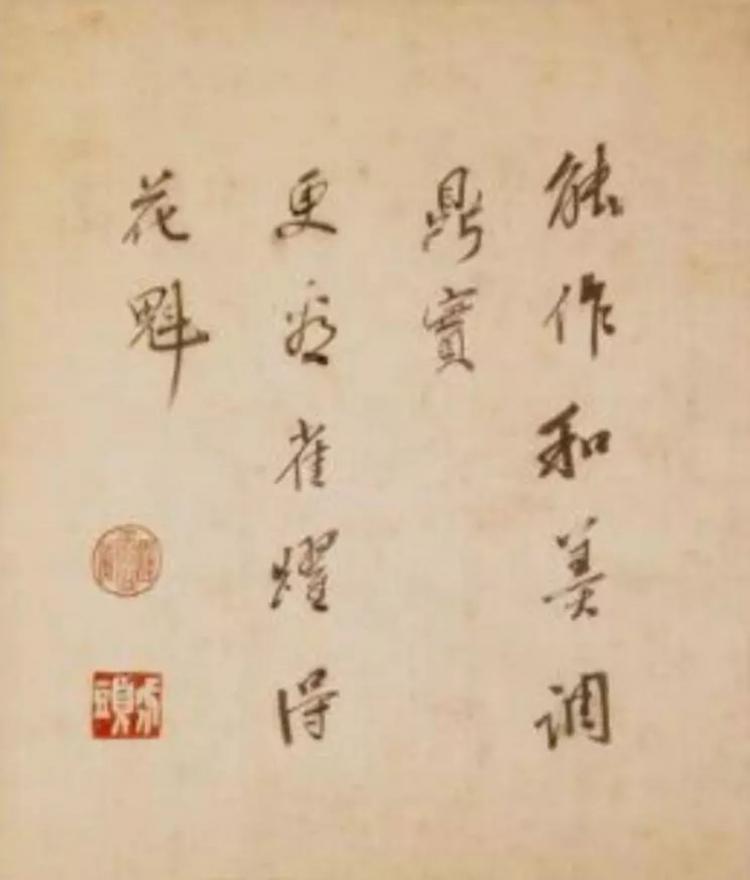 能作和羹調
鼎實
更看雀躍得
花魁